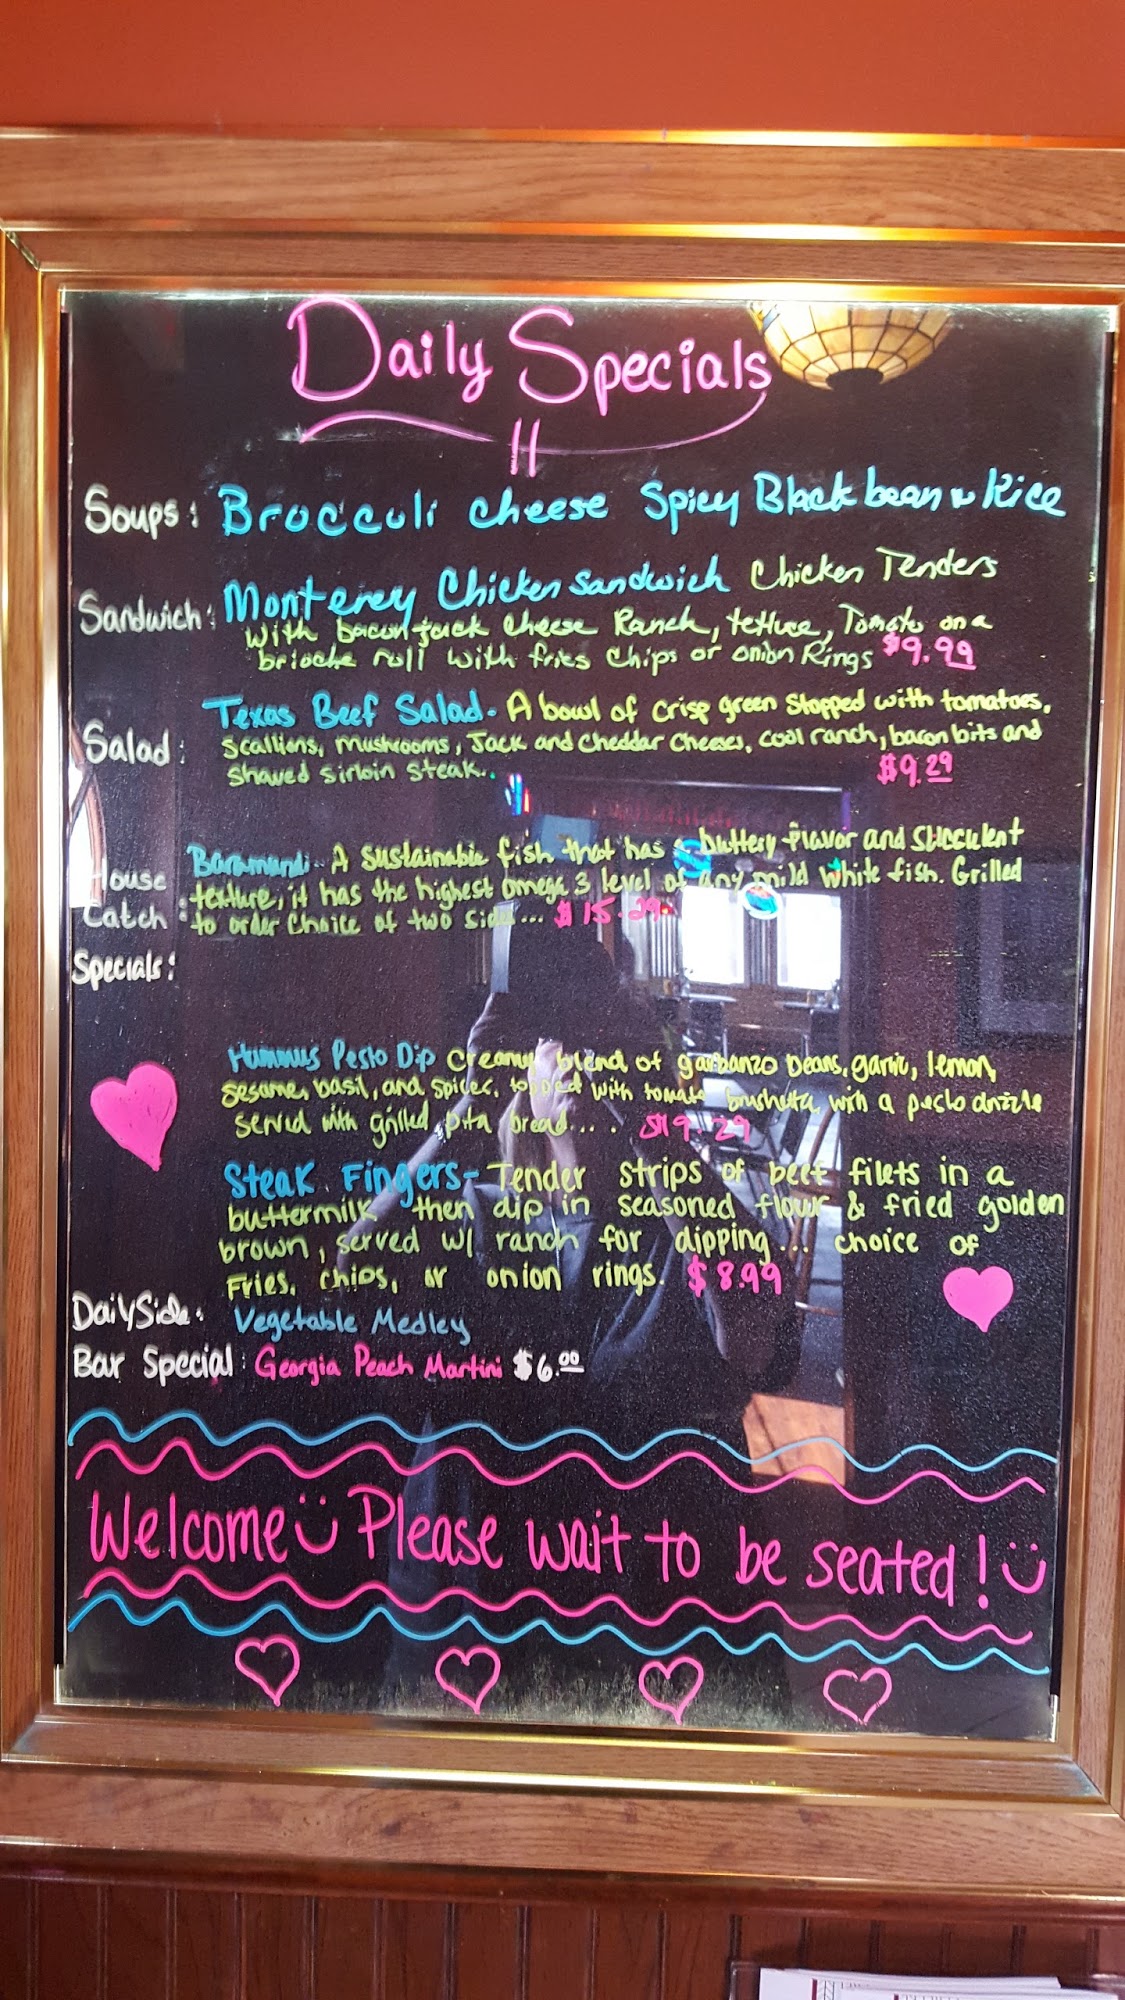 Daily Specials
Soups: Broccoli cheese Spicy Black bean w Rice
Sandwich: Monterey Chicken Sandwich Chicken Tenders
with bacon Jack cheese Ranch, lettuce, Tomato on a
brioche roll with fries chips or onion Rings $9.99
Salad: Texas Beef Salad- A bowl of crisp green stopped with tomatoes,
scallions, mushrooms, Jack and cheddar cheeses, cool ranch, bacon bits and
shaved sirloin steak.. $9.29
House Catch: Barramundi- A sustainable fish that has a buttery flavor and succulent
texture, it has the highest omega 3 level of any mild white fish. Grilled
to order choice of two sides... $15.29
Specials:
Hummus Pesto Dip Creamy blend of garbanzo beans, garlic, lemon,
sesame, basil, and spices, topped with tomato brushetta with a pesto drizzle
served with grilled pita bread.... $9.29
Steak Fingers- Tender strips of beef filets in a
buttermilk then dip in seasoned flour & fried golden
brown, served w/ ranch for dipping... choice of
Fries, chips, or onion rings. $8.99
Daily Side: Vegetable Medley
Bar Special: Georgia Peach Martini $6.00
Welcome Please wait to be seated!